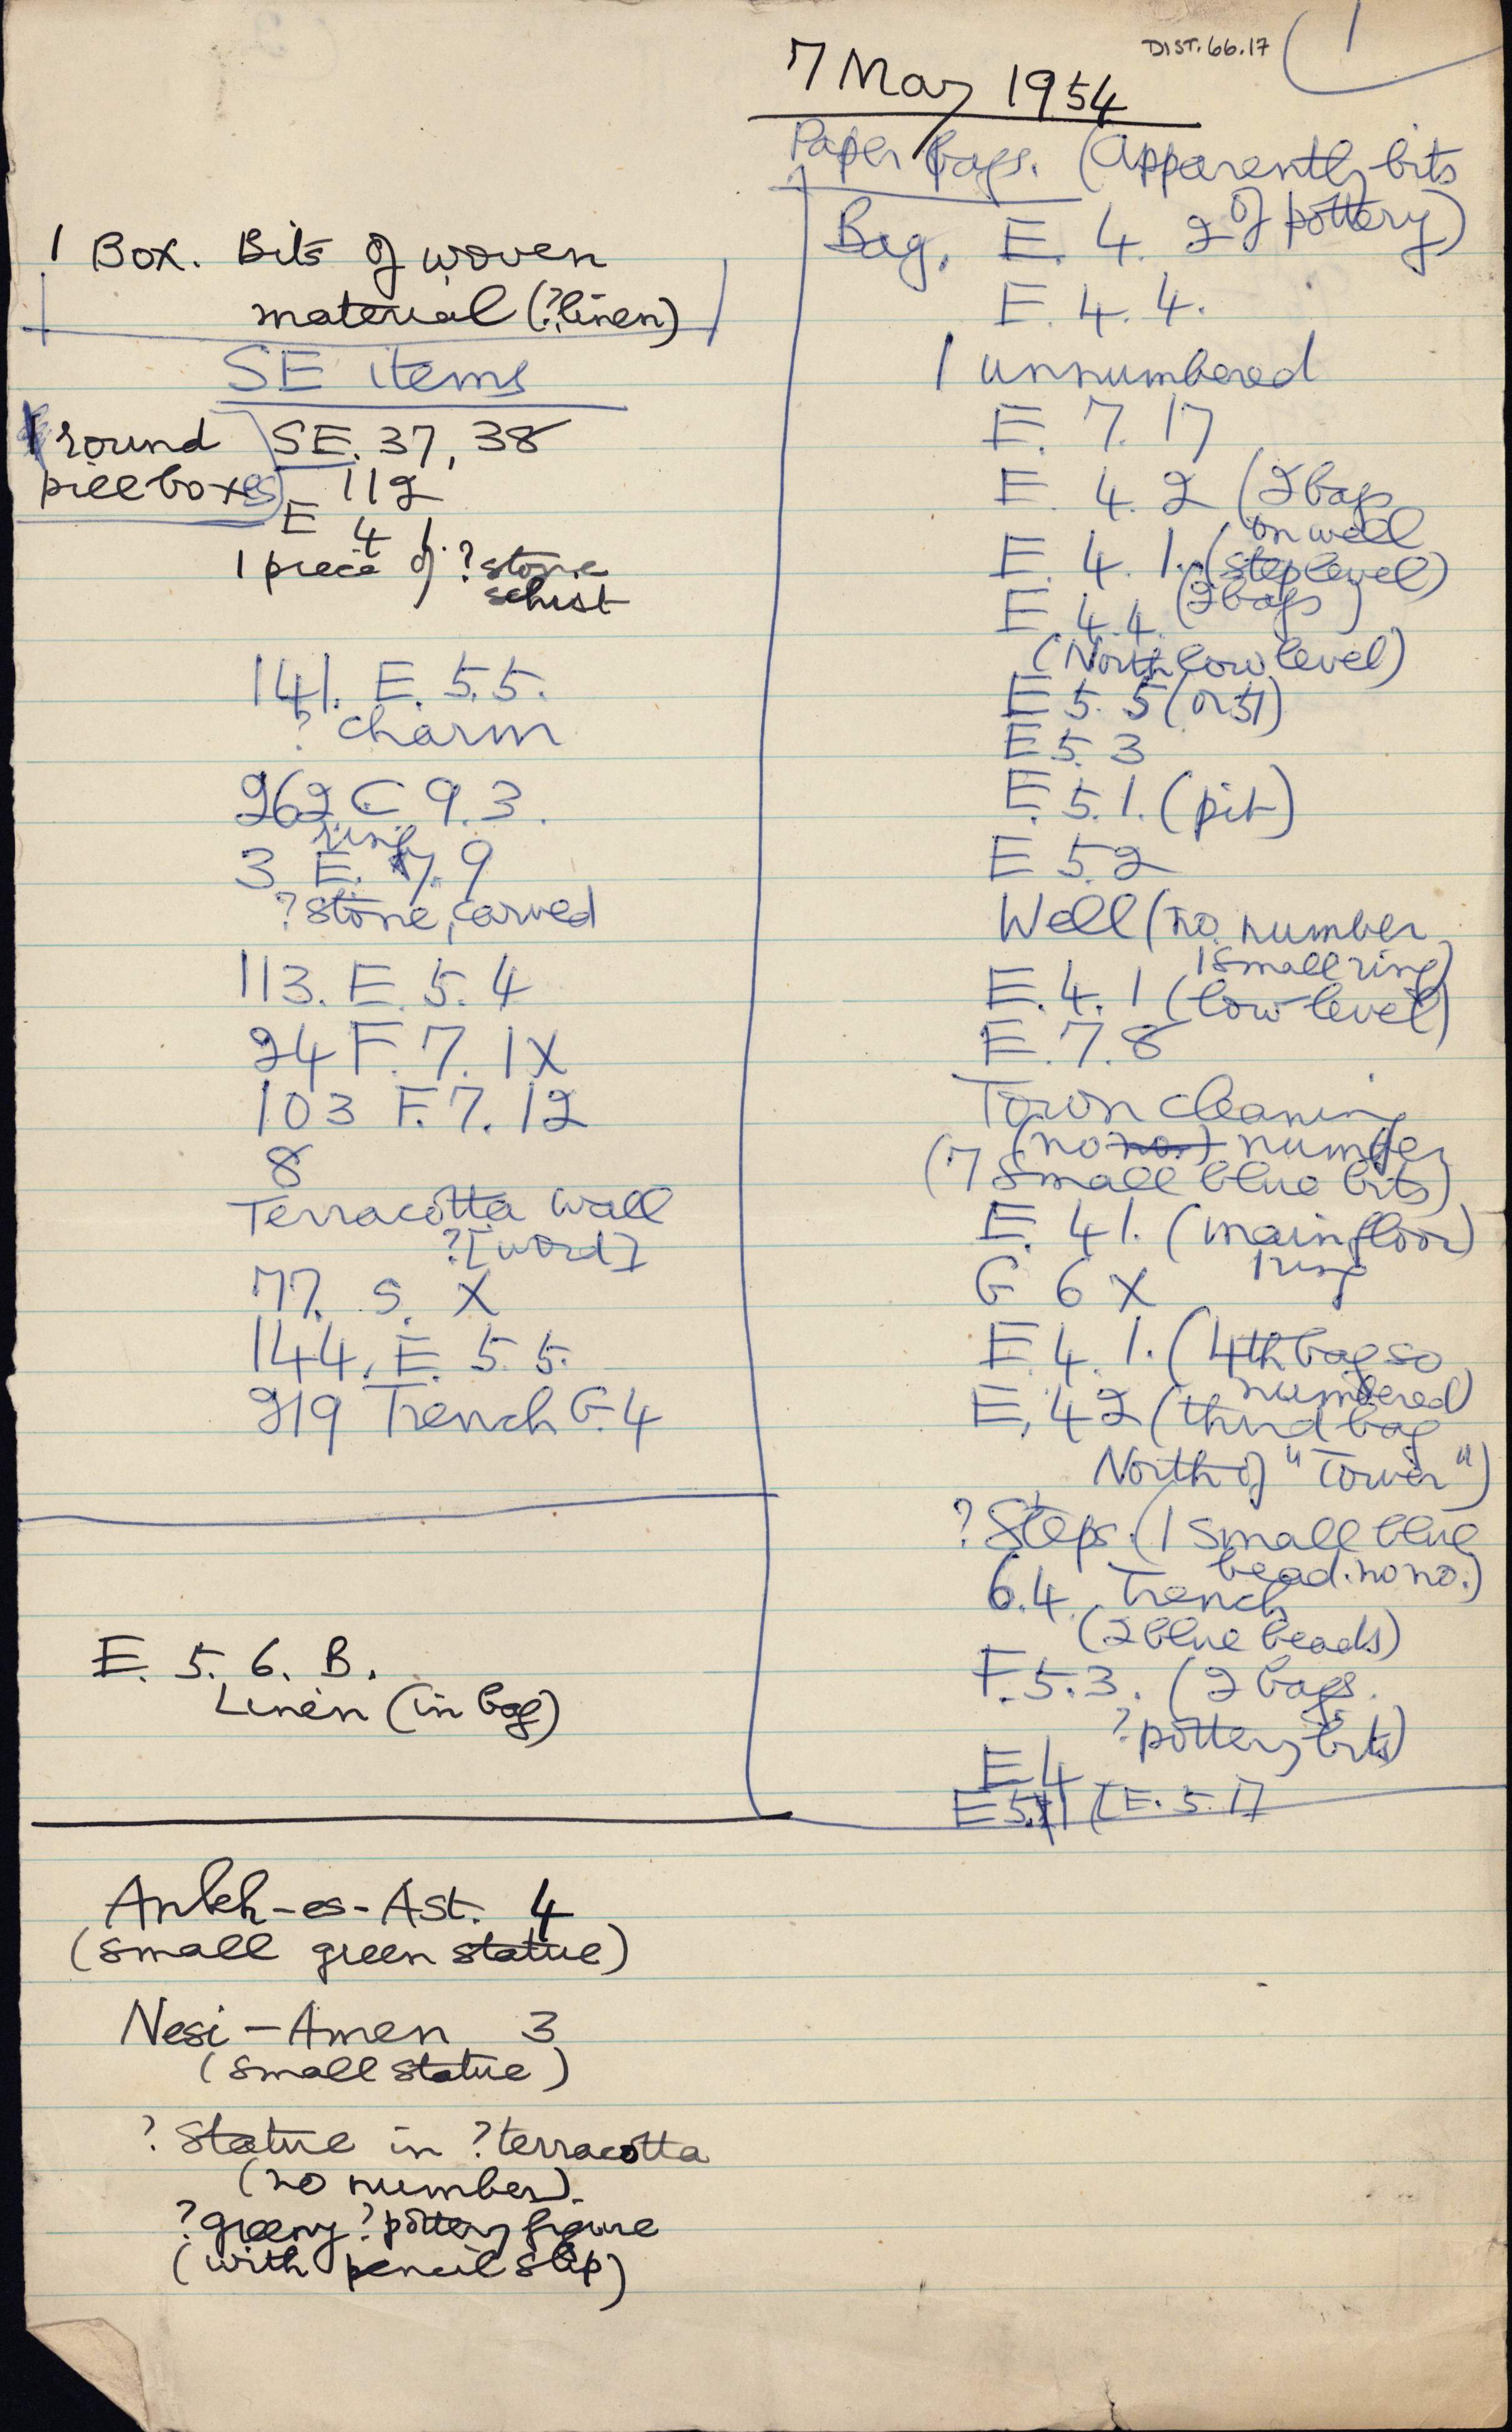 DIST.66.17
1
7 May 1954
1 Box. Bits of woven
material (?linen)
SE items
1 round
pillboxes
SE. 37, 38
E 112
E 4 1.
1 piece of ?stone
schist
141. E. 5.5.
? charm
262 C. 9.3.
ring
3 E. 7.9
?stone, carved
113. E. 5. 4
24 F. 7. 1X
103 F. 7. 12
8
Terracotta wall
?[word]
77. S. X
144. E. 5.5.
219 Trench G.4
E. 5. 6. B.
Linen (in bag)
Ankh-es-Ast. 4
(small green statue)
Nesi-Amen 3
(small statue)
? Statue in ?terracotta
(no number).
?greeny ?pottery figure
(with pencil slip)
Paper bags. (Apparently bits
of pottery)
Bag. E. 4. 2
E. 4. 4.
1 unnumbered
E. 7. 17
E. 4. 2 (2 bags
on well
E. 4. 1. (step level)
E 4.4. (2 bags)
(North low level)
E 5. 5 (or 51)
E 5. 3
E. 5. 1. (pit)
E 5.2
Well (no number
1 small ring)
E. 4. 1 (low level)
E. 7. 8
Town cleaning
(no no.) number
(7 small blue bits)
E. 41. (main floor)
1 ring
G 6 X
E 4. 1. (4th bag so
numbered)
E. 42 (third bag
North of "Tower")
? Steps. (1 small blue
bead. no no.)
6.4. Trench
(2 blue beads)
F. 5. 3. (2 bags.
?pottery bits)
E 4
E 5. 1 [E. 5. 1]